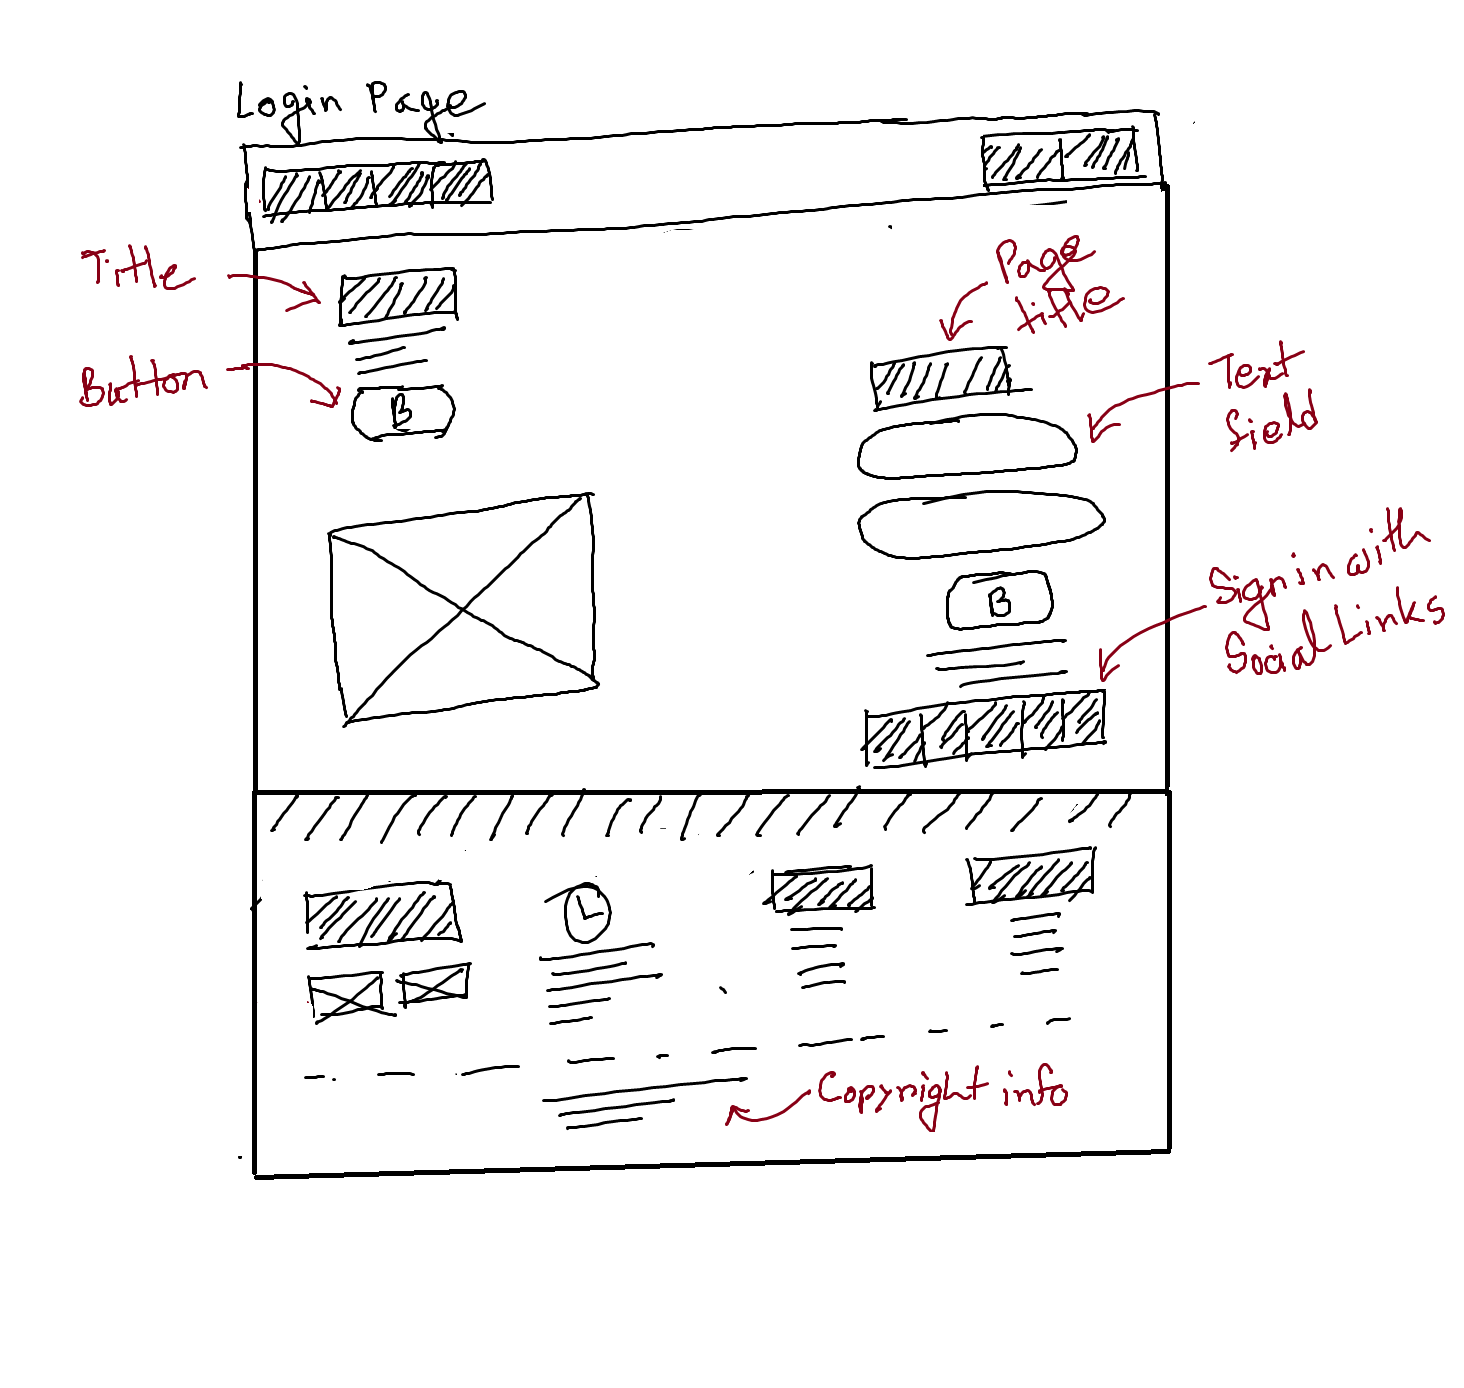 Login Page
Title
Button
B
Page
title
Text
field
B
Sign in with
Social Links
Copyright info